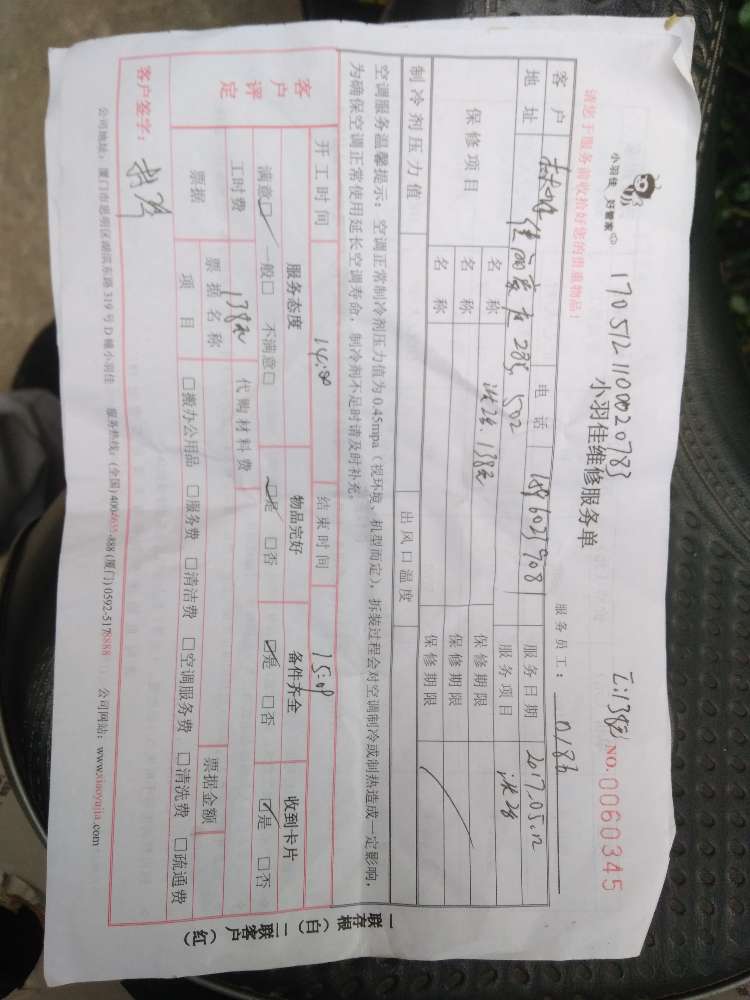 小羽佳 好管家
170512110020783
工:138元
小羽佳维修服务单
NO.0060345
请您于服务前收拾好您的贵重物品!
服务员工: 0186
客户 电话 服务日期 2017.05.12
地址 28号 502 服务项目
保修项目 名称 138元 保修期限
名称 保修期限
名称 保修期限
制冷剂压力值 出风口温度
空调服务温馨提示: 空调正常制冷剂压力值为0.45mpa(视环境、机型而定), 拆装过程会对空调制冷或制热造成一定影响,
为确保空调正常使用延长空调寿命, 制冷剂不足时请及时补充。
开工时间 14:00 结束时间 15:00
客户评定 服务态度 物品完好 备件齐全 收到卡片
满意☑ 一般□ 不满意□ ☑是 □否 ☑是 □否 ☑是 □否
工时费 138元 代购材料费
票据 票据名称 票据金额
项目 □搬办公用品 □服务费 □清洁费 □空调服务费 □清洗费 □疏通费
客户签字:
公司地址: 厦门市思明区湖滨东路319号D幢小羽佳 服务热线: (全国) (厦门) 公司网站: www.xiaoyujia.com
一联存根(白) 二联客户(红)